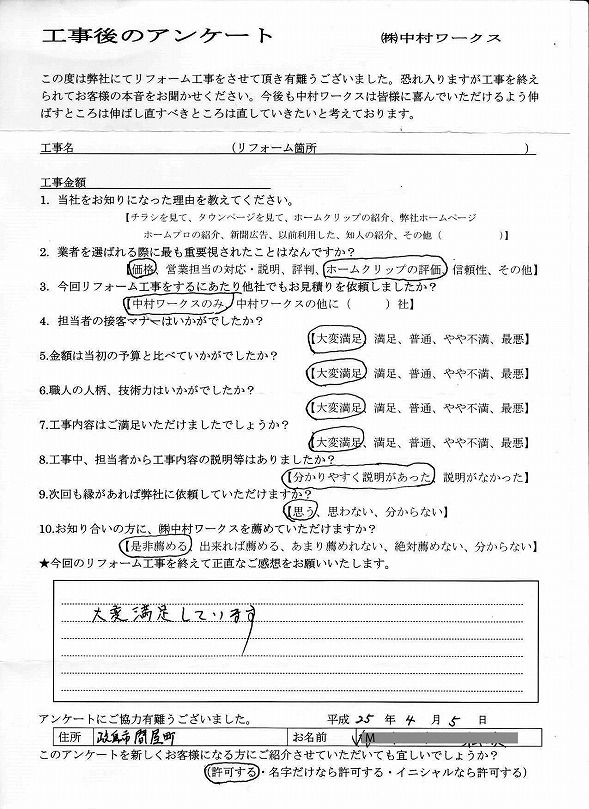 工事後のアンケート ㈱中村ワークス
この度は弊社にてリフォーム工事をさせて頂き有難うございました。恐れ入りますが工事を終え
られてお客様の本音をお聞かせください。今後も中村ワークスは皆様に喜んでいただけるよう伸
ばすところは伸ばし直すべきところは直していきたいと考えております。
工事名 (リフォーム箇所 )
工事金額
1. 当社をお知りになった理由を教えてください。
【チラシを見て、タウンページを見て、ホームクリップの紹介、弊社ホームページ
ホームプロの紹介、新聞広告、以前利用した、知人の紹介、その他（ )】
2. 業者を選ばれる際に最も重要視されたことはなんですか？
【価格、営業担当の対応・説明、評判、ホームクリップの評価、信頼性、その他】
3. 今回リフォーム工事をするにあたり他社でもお見積りを依頼しましたか？
【中村ワークスのみ、中村ワークスの他に（ ）社】
4. 担当者の接客マナーはいかがでしたか？
【大変満足、満足、普通、やや不満、最悪】
5.金額は当初の予算と比べていかがでしたか？
【大変満足、満足、普通、やや不満、最悪】
6.職人の人柄、技術力はいかがでしたか？
【大変満足、満足、普通、やや不満、最悪】
7.工事内容はご満足いただけましたでしょうか？
【大変満足、満足、普通、やや不満、最悪】
8.工事中、担当者から工事内容の説明等はありましたか？
【分かりやすく説明があった、説明がなかった】
9.次回も縁があれば弊社に依頼していただけますか？
【思う、思わない、分からない】
10.お知り合いの方に、㈱中村ワークスを薦めていただけますか？
【是非薦める、出来れば薦める、あまり薦めれない、絶対薦めない、分からない】
★今回のリフォーム工事を終えて正直なご感想をお願いいたします。
大変満足しています
アンケートにご協力有難うございました。 平成 25 年 4 月 5 日
住所 岐阜市問屋町 お名前 M
このアンケートを新しくお客様になる方にご紹介させていただいても宜しいでしょうか？
（許可する・名字だけなら許可する・イニシャルなら許可する）